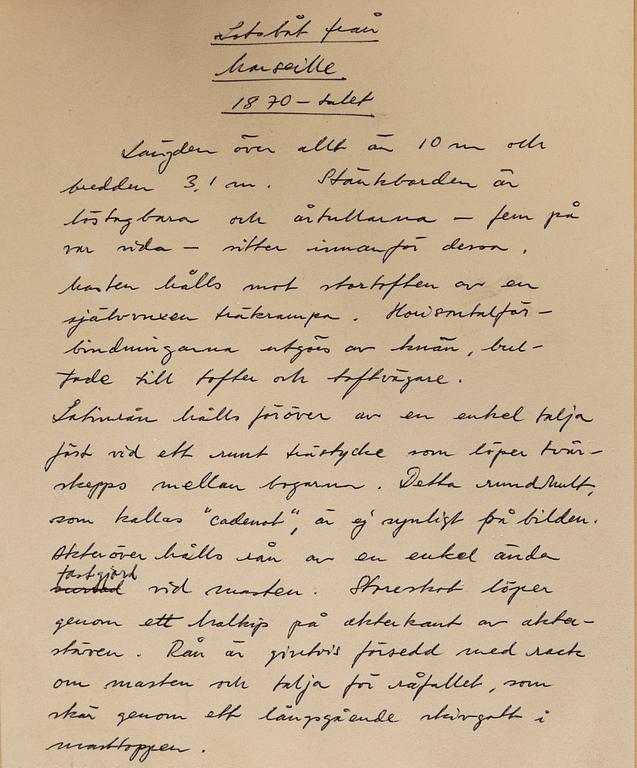 Lotsbåt från
Marseille
1870-talet
Längden över allt är 10 m och
bredden 3,1 m. Stänkborden är
löstagbara och årtullarna – fem på
var sida – sitter innanför dessa.
Masten hålls mot stortoften av en
självvuxen träkrampa. Horisontalför-
bindningarna utgörs av knän, bul-
tade till tofter och toftvägare.
Latinrån hålls föröver av en enkel talja
fäst vid ett runt trästycke som löper tvär-
skepps mellan bogarna. Detta rundhult,
som kallas "cadenat", är ej synligt på bilden.
Akteröver hålls rån av en enkel ända
fastgjord vid masten. Storeskot löper
genom ett halkip på akterkant av akter-
stäven. Rån är givetvis försedd med rack
om masten och talja för råfallet, som
skär genom ett långsgående skivgatt i
masttoppen.